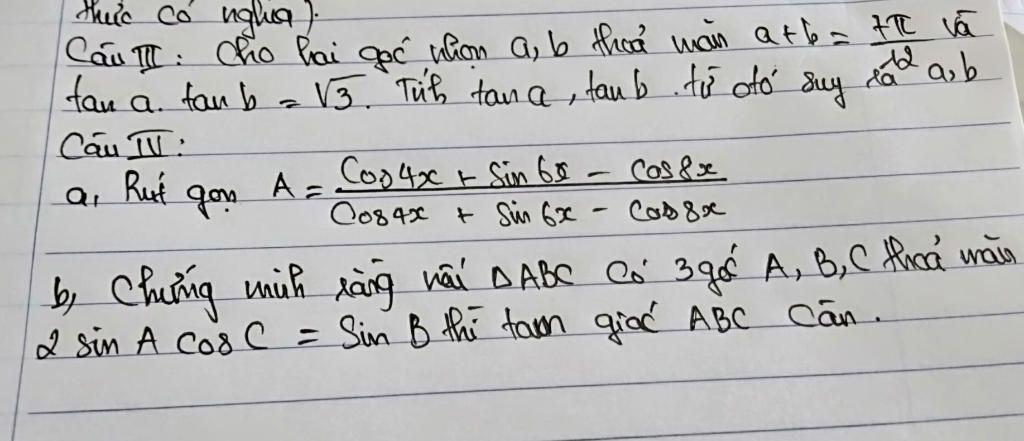 thức có nghĩa).
Câu III: Cho hai góc nhọn a, b thoả mãn a+b = 7π/12 và
tan a. tan b = √3. Tính tan a, tan b. từ đó suy ra a, b
Câu IV:
a, Rút gọn A = (Cos4x + Sin 6x - Cos8x)/(Cos4x + Sin 6x - Cos8x)
b, Chứng minh rằng nếu ΔABC Có 3 góc A, B, C thoả mãn
2 sin A cos C = Sin B thì tam giác ABC Cân.